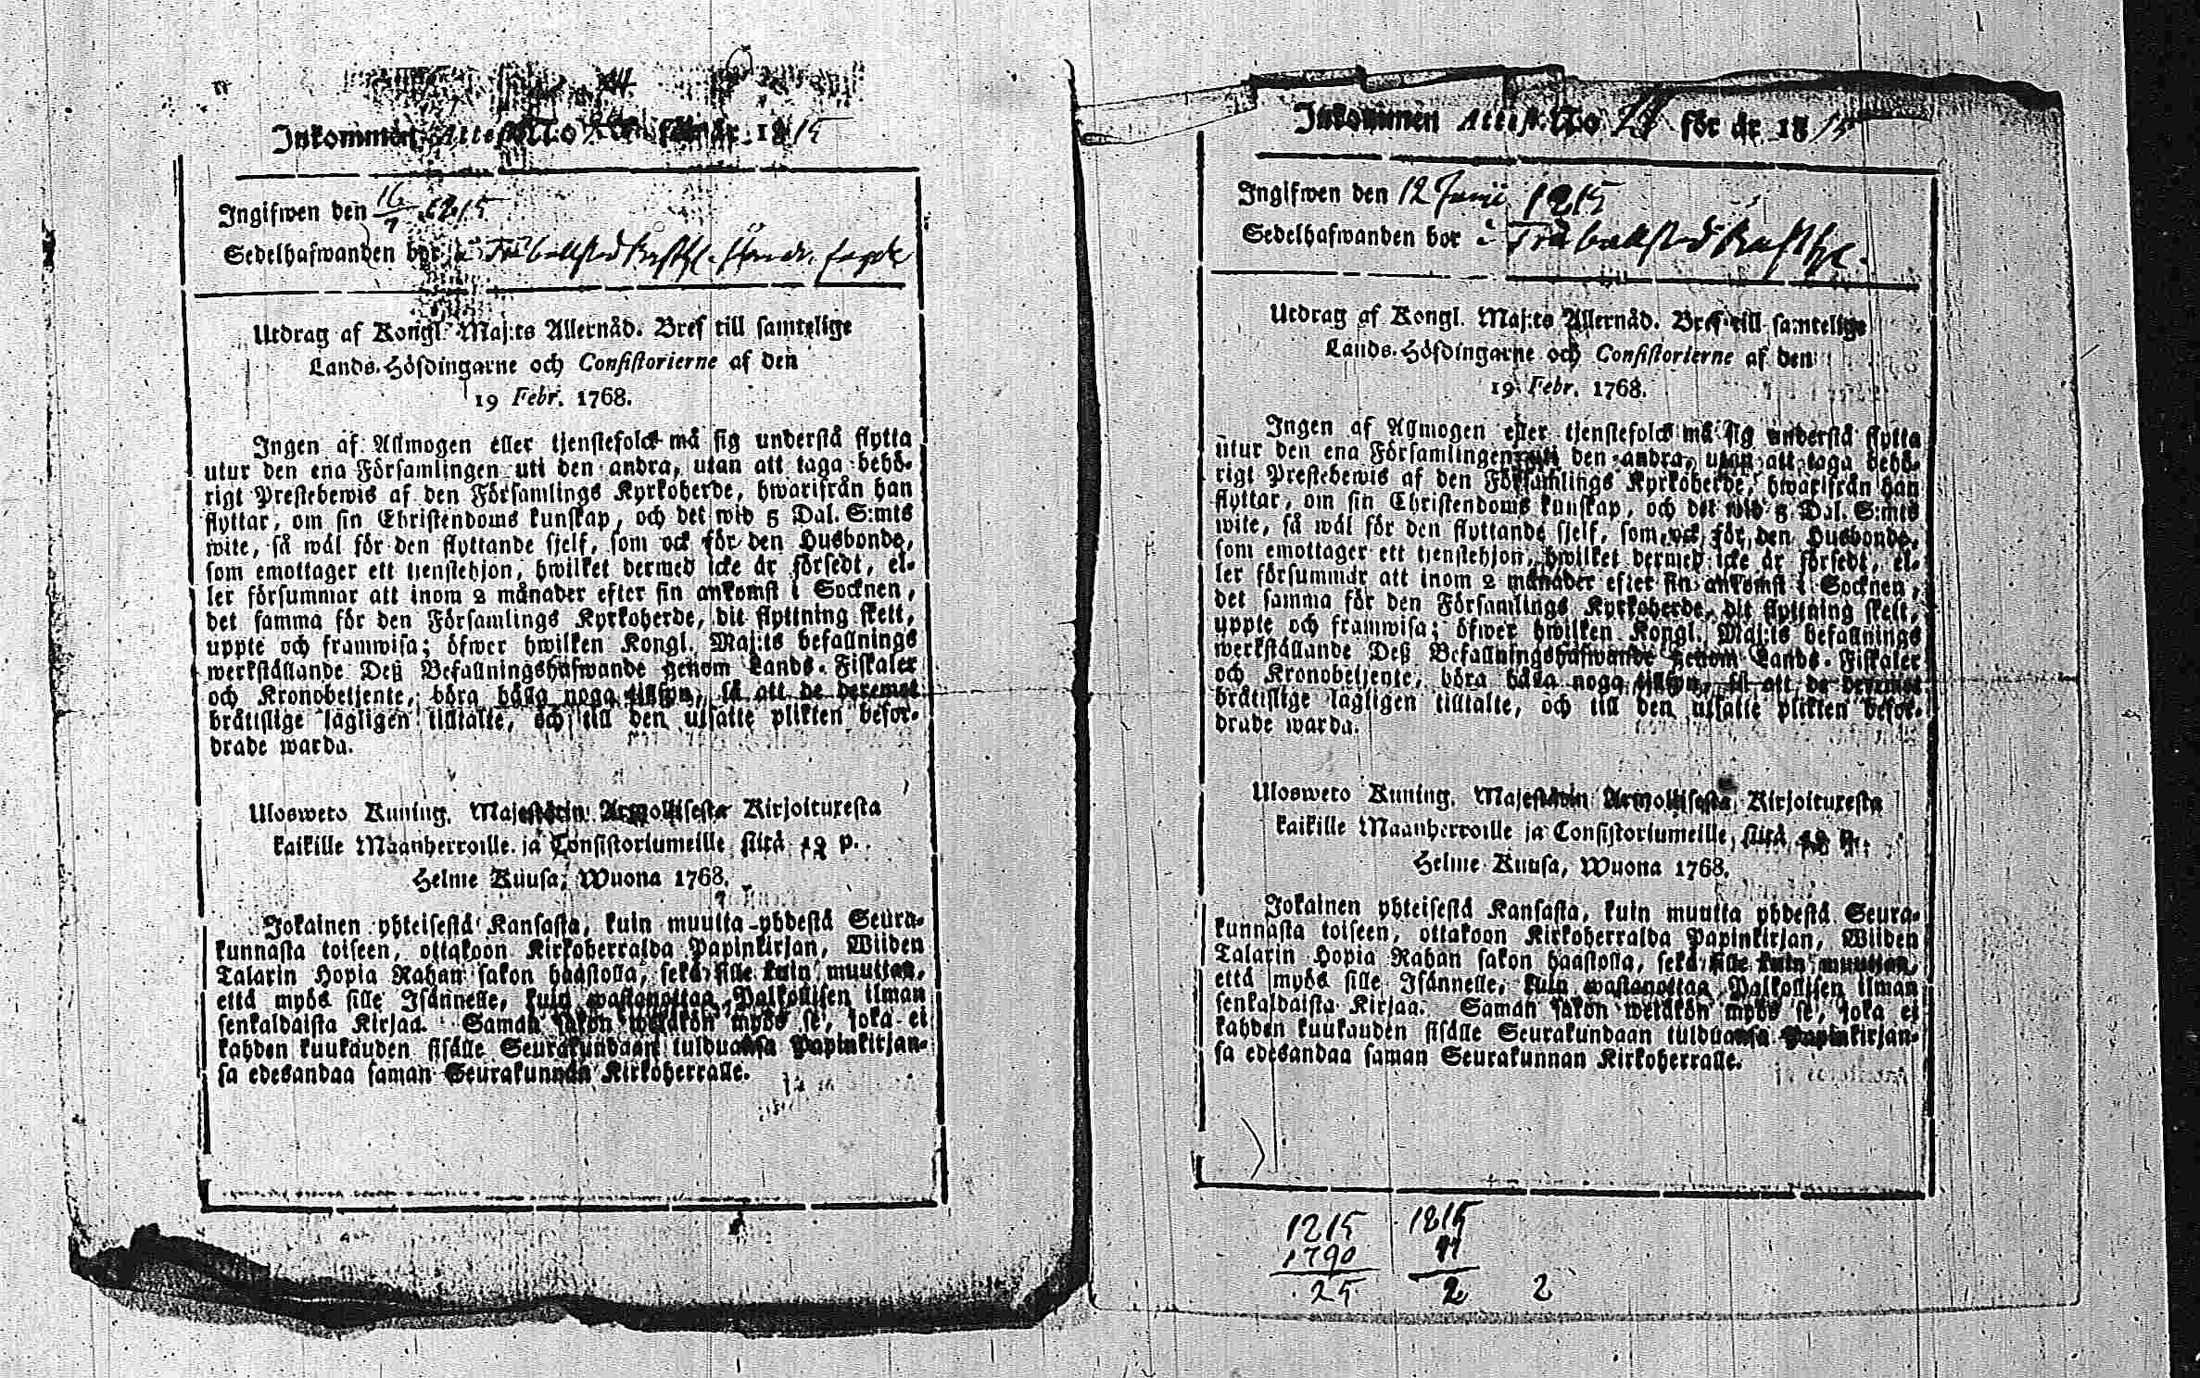 Inkommen Attest N:o för år 1815
Ingifwen den 16/7 1815
Sedelhafwanden bor å Träbollstad
Utdrag af Kongl. Maj:ts Allernåd. Bref till samtelige
Lands-Höfdingarne och Consistorierne af den
19 Febr. 1768.
Ingen af Allmogen eller tjenstefolck må sig understå flytta
utur den ena Församlingen uti den andra, utan att taga behö-
rigt Prestebewis af den Församlings Kyrkoherde, hwarifrån han
flyttar, om sin Christendoms kunskap, och det wid 5 Dal. S:mts
wite, så wäl för den flyttande sjelf, som ock för den Husbonde,
som emottager ett tjenstehjon, hwilket dermed icke är försedt, el-
ler försummar att inom 2 månader efter sin ankomst i Socknen,
det samma för den Församlings Kyrkoherde, dit flyttning skett,
uppte och framwisa; öfwer hwilken Kongl. Maj:ts befallnings
werkställande Deß Befallningshafwande genom Lands-Fiskaler
och Kronobetjente, böra hålla noga tillsyn, så att de deremot
bråtislige lagligen tilltalte, och till den utsatte plikten befor-
drade warda.
Ulosweto Kuning. Majestätin Armollisesta Kirjoituxesta
kaikille Maanherroille ja Consistoriumeille siitä 19 p.
Helme Kuusa, Wuona 1768.
Jokainen yhteisestä Kansasta, kuin muutta yhdestä Seura-
kunnasta toiseen, ottakoon Kirkoherralda Papinkirjan, Wiiden
Talarin Hopia Rahan sakon haastolla, sekä sille kuin muuttaa,
että myös sille Isännelle, kuin wastanottaa Palkollisen ilman
senkaldaista Kirjaa. Saman sakon wetäkön myös se, joka ei
kahden kuukauden sisälle Seurakundaan tulduansa Papinkirjan-
sa edesandaa saman Seurakunnan Kirkoherralle.
Inkommen Attest. N:o för år 1815
Ingifwen den 12 Junii 1815
Sedelhafwanden bor å Träbollstad
Utdrag af Kongl. Maj:ts Allernåd. Bref till samtelige
Lands-Höfdingarne och Consistorierne af den
19 Febr. 1768.
Ingen af Allmogen eller tjenstefolck må sig understå flytta
utur den ena Församlingen uti den andra, utan att taga behö-
rigt Prestebewis af den Församlings Kyrkoherde, hwarifrån han
flyttar, om sin Christendoms kunskap, och det wid 5 Dal. S:mts
wite, så wäl för den flyttande sjelf, som ock för den Husbonde,
som emottager ett tjenstehjon, hwilket dermed icke är försedt, el-
ler försummar att inom 2 månader efter sin ankomst i Socknen,
det samma för den Församlings Kyrkoherde, dit flyttning skett,
uppte och framwisa; öfwer hwilken Kongl. Maj:ts befallnings
werkställande Deß Befallningshafwande genom Lands-Fiskaler
och Kronobetjente, böra hålla noga tillsyn, så att de deremot
bråtislige lagligen tilltalte, och till den utsatte plikten befor-
drade warda.
Ulosweto Kuning. Majestätin Armollisesta Kirjoituxesta
kaikille Maanherroille ja Consistoriumeille, siitä 19 p.
Helme Kuusa, Wuona 1768.
Jokainen yhteisestä Kansasta, kuin muutta yhdestä Seura-
kunnasta toiseen, ottakoon Kirkoherralda Papinkirjan, Wiiden
Talarin Hopia Rahan sakon haastolla, sekä sille kuin muuttaa,
että myös sille Isännelle, kuin wastanottaa Palkollisen ilman
senkaldaista Kirjaa. Saman sakon wetäkön myös se, joka ei
kahden kuukauden sisälle Seurakundaan tulduansa Papinkirjan-
sa edesandaa saman Seurakunnan Kirkoherralle.
1815 1815
1790
25 2 2